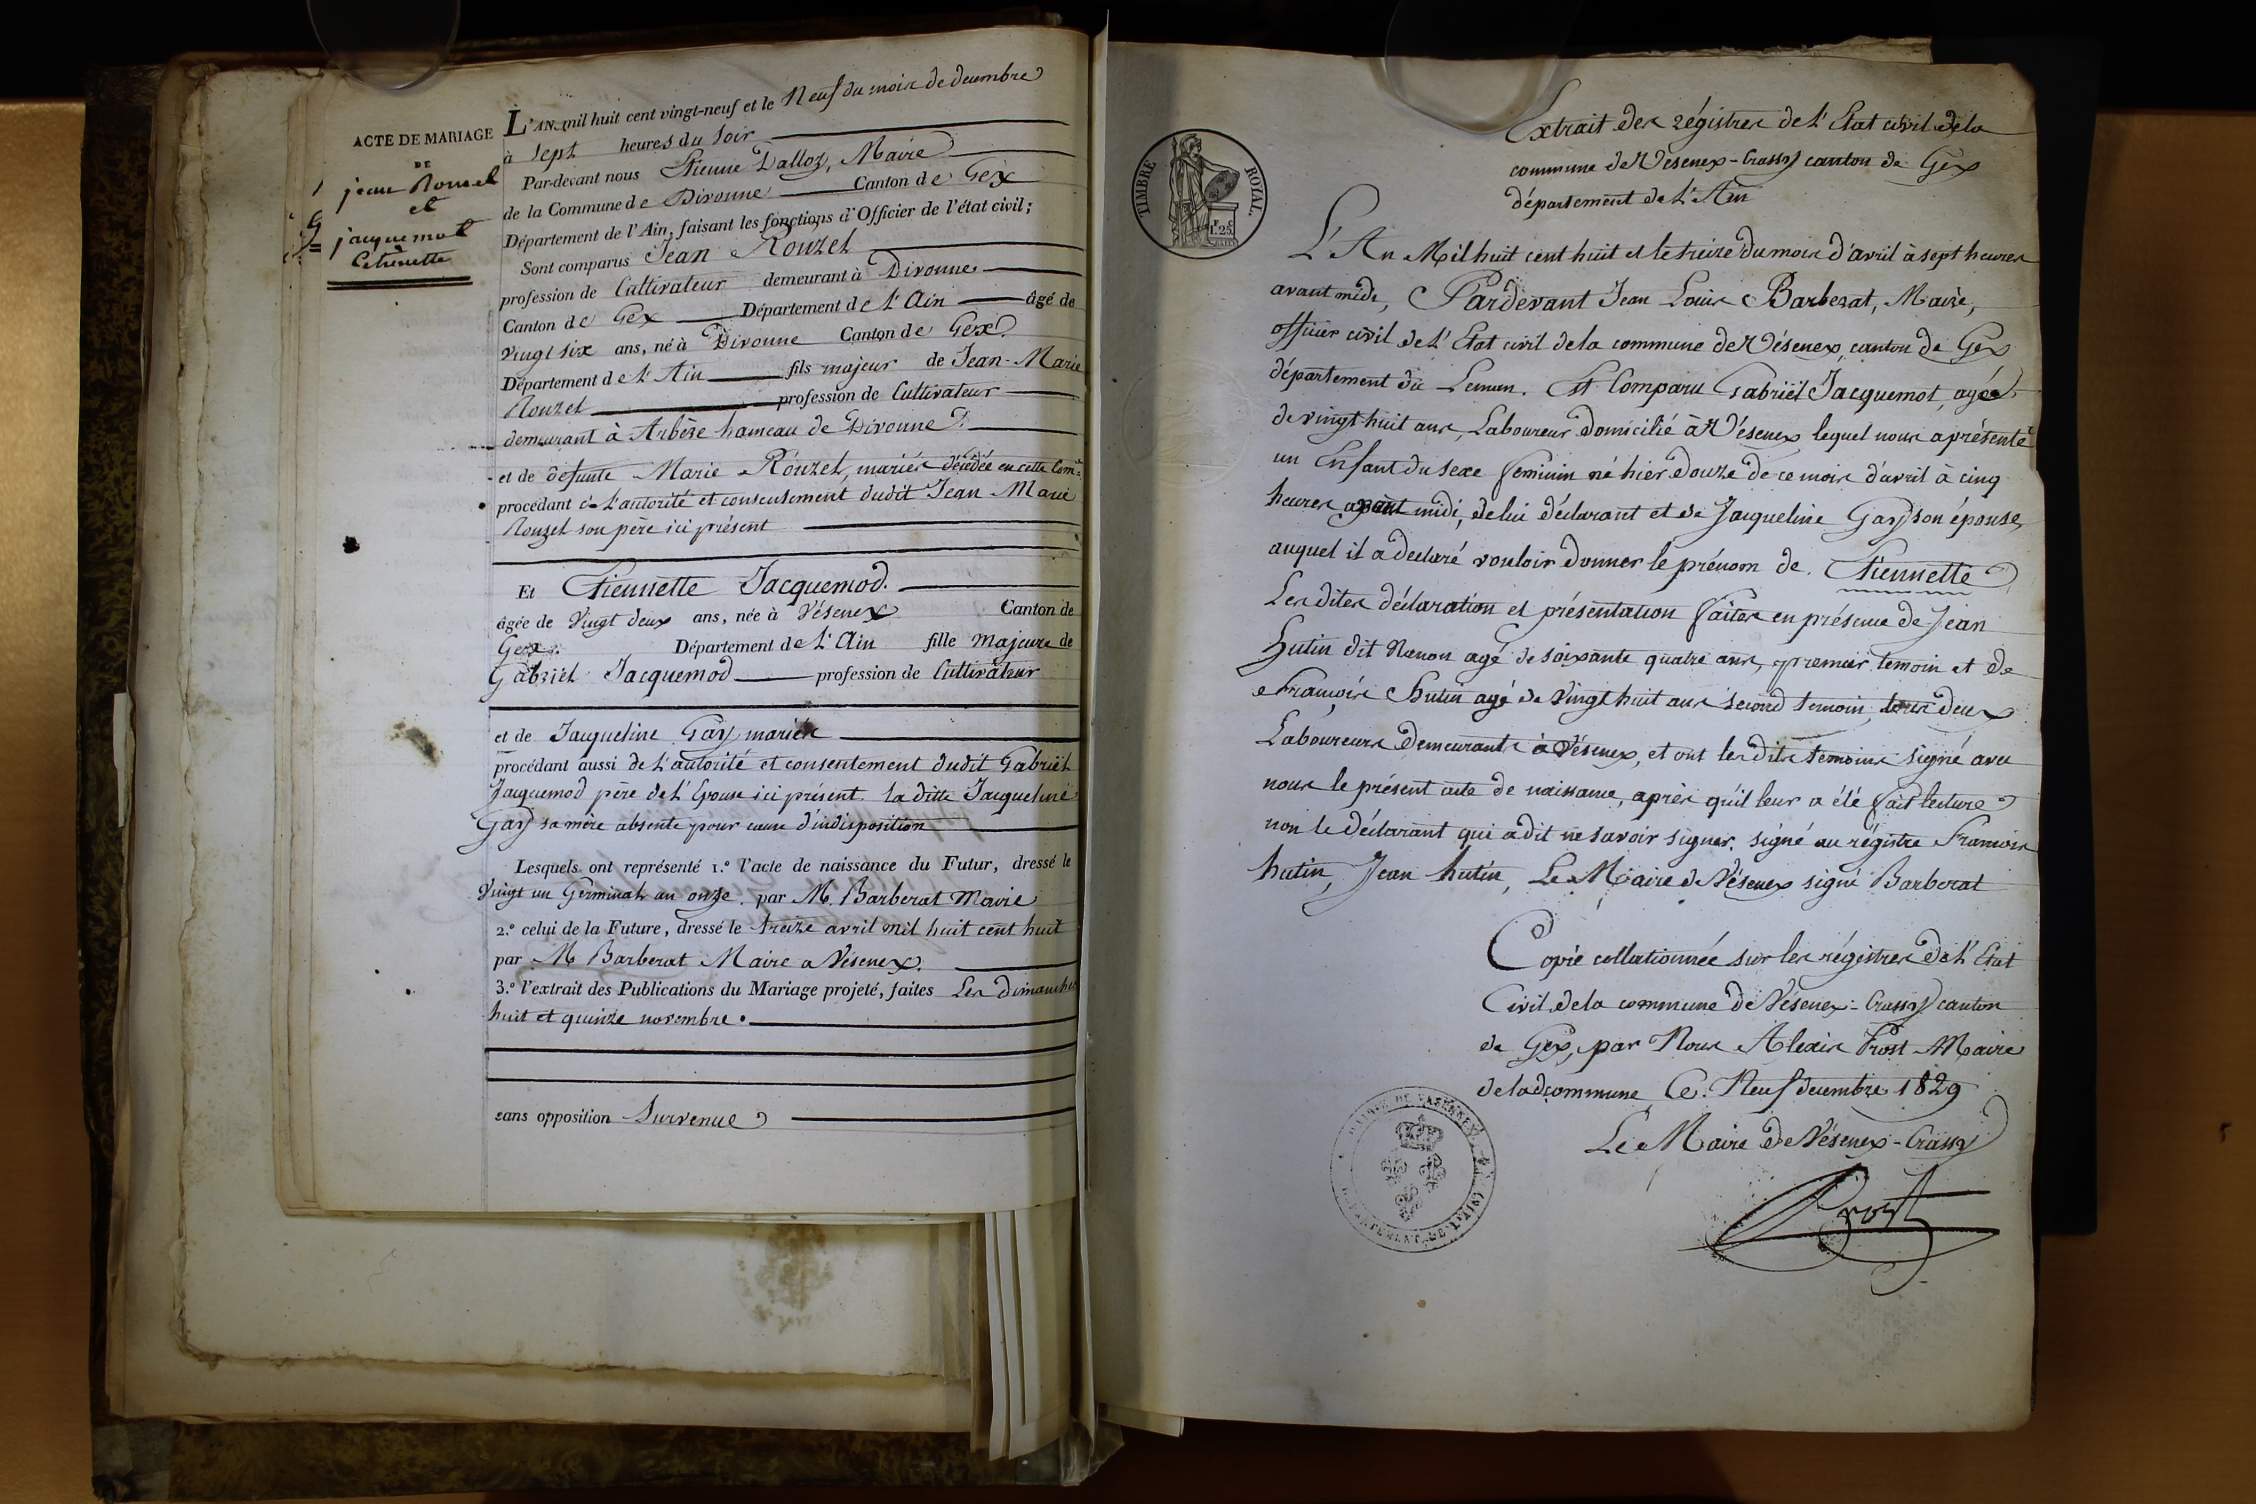 ACTE DE MARIAGE
DE
jean Rouzel
et
jacquemot
Etienette
L'AN mil huit cent vingt-neuf et le Neuf du mois de decembre
à sept heures du soir
Par-devant nous Etienne Dalloz, Maire
de la Commune de Divonne Canton de Gex
Département de l'Ain, faisant les fonctions d'Officier de l'état civil;
Sont comparus Jean Rouzel
profession de Cultivateur demeurant à Divonne
Canton de Gex Département de L'Ain âgé de
vingt six ans, né à Divonne Canton de Gex
Département de L'Ain fils majeur de Jean-Marie
Rouzel profession de Cultivateur
demeurant à Arbère hameau de Divonne
et de défunte Marie Rouzel, mariés décédée en cette Com.e
procédant de L'autorité et consentement dudit Jean Marie
Rouzel son père ici présent
Et Etiennette Jacquemod.
âgée de Vingt deux ans, née à Vésenex Canton de
Gex. Département de L'Ain fille majeure de
Gabriël Jacquemod profession de Cultivateur
et de Jacqueline Gay mariés
procédant aussi de L'autorité et consentement dudit Gabriël
Jacquemod père de L'Epouse ici présent la ditte Jacqueline
Gay sa mère absente pour cause d'indisposition
Lesquels ont représenté 1.º l'acte de naissance du Futur, dressé le
Vingt un Germinal an onze. par M. Barberat Maire
2.º celui de la Future, dressé le treize avril mil huit cent huit
par M Barberat Maire a Vésenex.
3.º l'extrait des Publications du Mariage projeté, faites Les dimanches
huit et quinze novembre.
sans opposition Survenue
TIMBRE ROYAL.
1F.25
Extrait des régistres de L'Etat civil dela
commune de Vésenex-Crassy canton de Gex
département de L'Ain
L'An Mil huit cent huit et le treize du mois d'avril à sept heures
avant midi, Pardevant Jean Louis Barberat, Maire,
officier civil de L'Etat civil dela commune de Vésenex, canton de Gex
département du Leman. Est Comparu Gabriël Jacquemot, agé
de vingt huit ans, Laboureur domicilié à Vésenex lequel nous a présenté
un Enfant du sexe feminin né hier douze de ce mois d'avril à cinq
heures midi, de lui déclarant et de Jacqueline Gay son épouse,
auquel il a declaré vouloir donner le prénom de Etiennette
Les dites déclaration et présentation faites en présence de Jean
Hutin dit Nanon agé de soixante quatre ans, premier temoin et de
François Hutin agé de Vingt huit ans second temoin, tous deux
Laboureurs demeurants à Vésenex, et ont les dits temoins signé avec
nous le présent acte de naissance, après qu'il leur a été fait lecture
non le déclarant qui a dit ne savoir signer. signé au régistre François
hutin, Jean hutin, Le Maire de Vésenex signé Barberat
Copie collationnée sur les régistres de L'Etat
Civil dela commune de Vésenex-Crassy canton
de Gex, par Nous Alexis Prost Maire
de lad. commune Ce Neuf decembre 1829
Le Maire de Vésenex-Crassy
Prost
MAIRIE DE VESENEX
DEPARTEMENT DE L'AIN